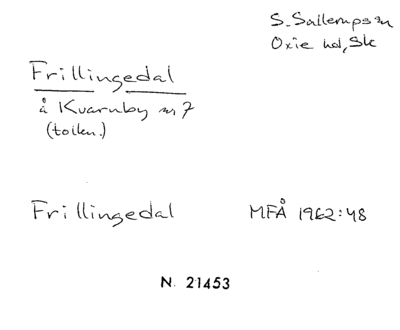 S. Sallerups sn
Oxie hd, Sk
Frillingedal
å Kvarnby nr 7
(torlen.)
Frillingedal MFÅ 1962:48
N. 21453